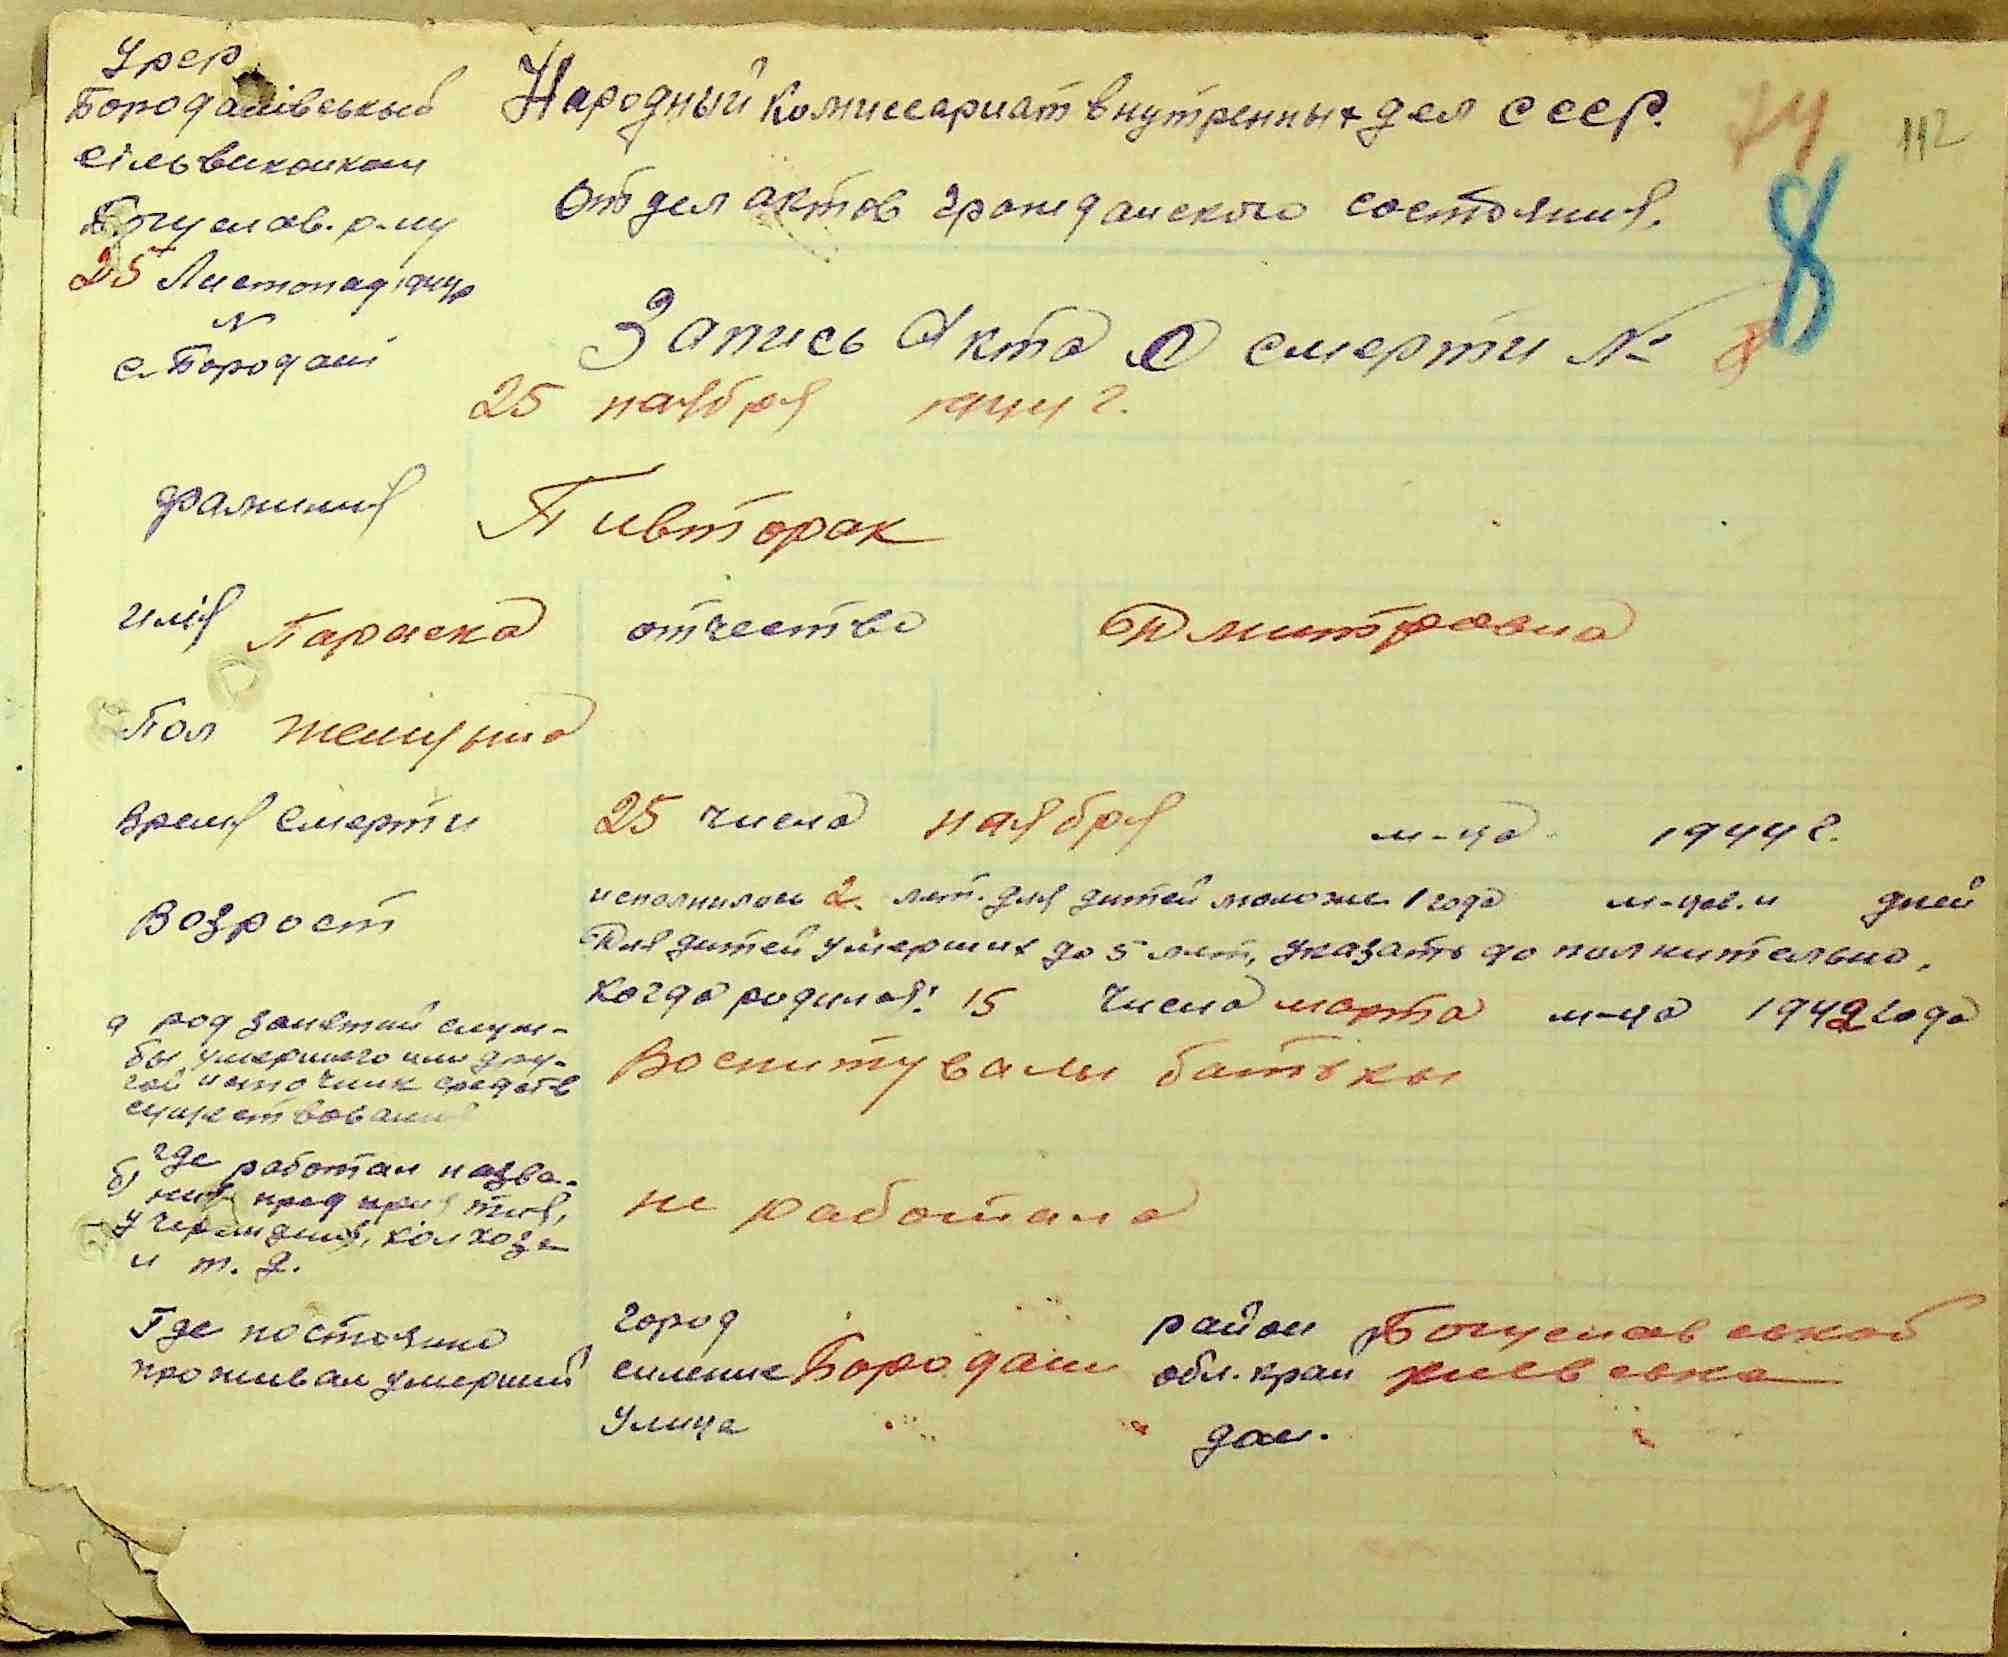 УРСР
Бороданівський
сільвиконком
Богуслав. р-ну
25 Листопад 1944р
№
с. Бородані
Народный Комиссариат внутренных дел СССР.
Отдел актов гражданского состояния.
74
112
8
Запись Акта о смерти № 8
25 ноября 1944 г.
фамилия Пивторак
имя Параска отчество Дмитровна
Пол женщына
Время Смерти 25 числа ноября м-ца 1944 г.
Возрост исполнилось 2 лет. для дитей моложе 1 года м-цев. и дней
Для дитей умерших до 5 лет, указать до полнительно,
когда родился: 15 числа марта м-ца 1942 года
а род занятий служ-
бы умершего или дру-
гой источник средств
существования
Воспитували батькы
б) где работал назва-
ния предприятия,
учереждения, колхоза
и т. д.
не работала
Где постояно
проживал умерший
город
силение Бородани
улица
район Богуславской
обл. край киевска
дом.